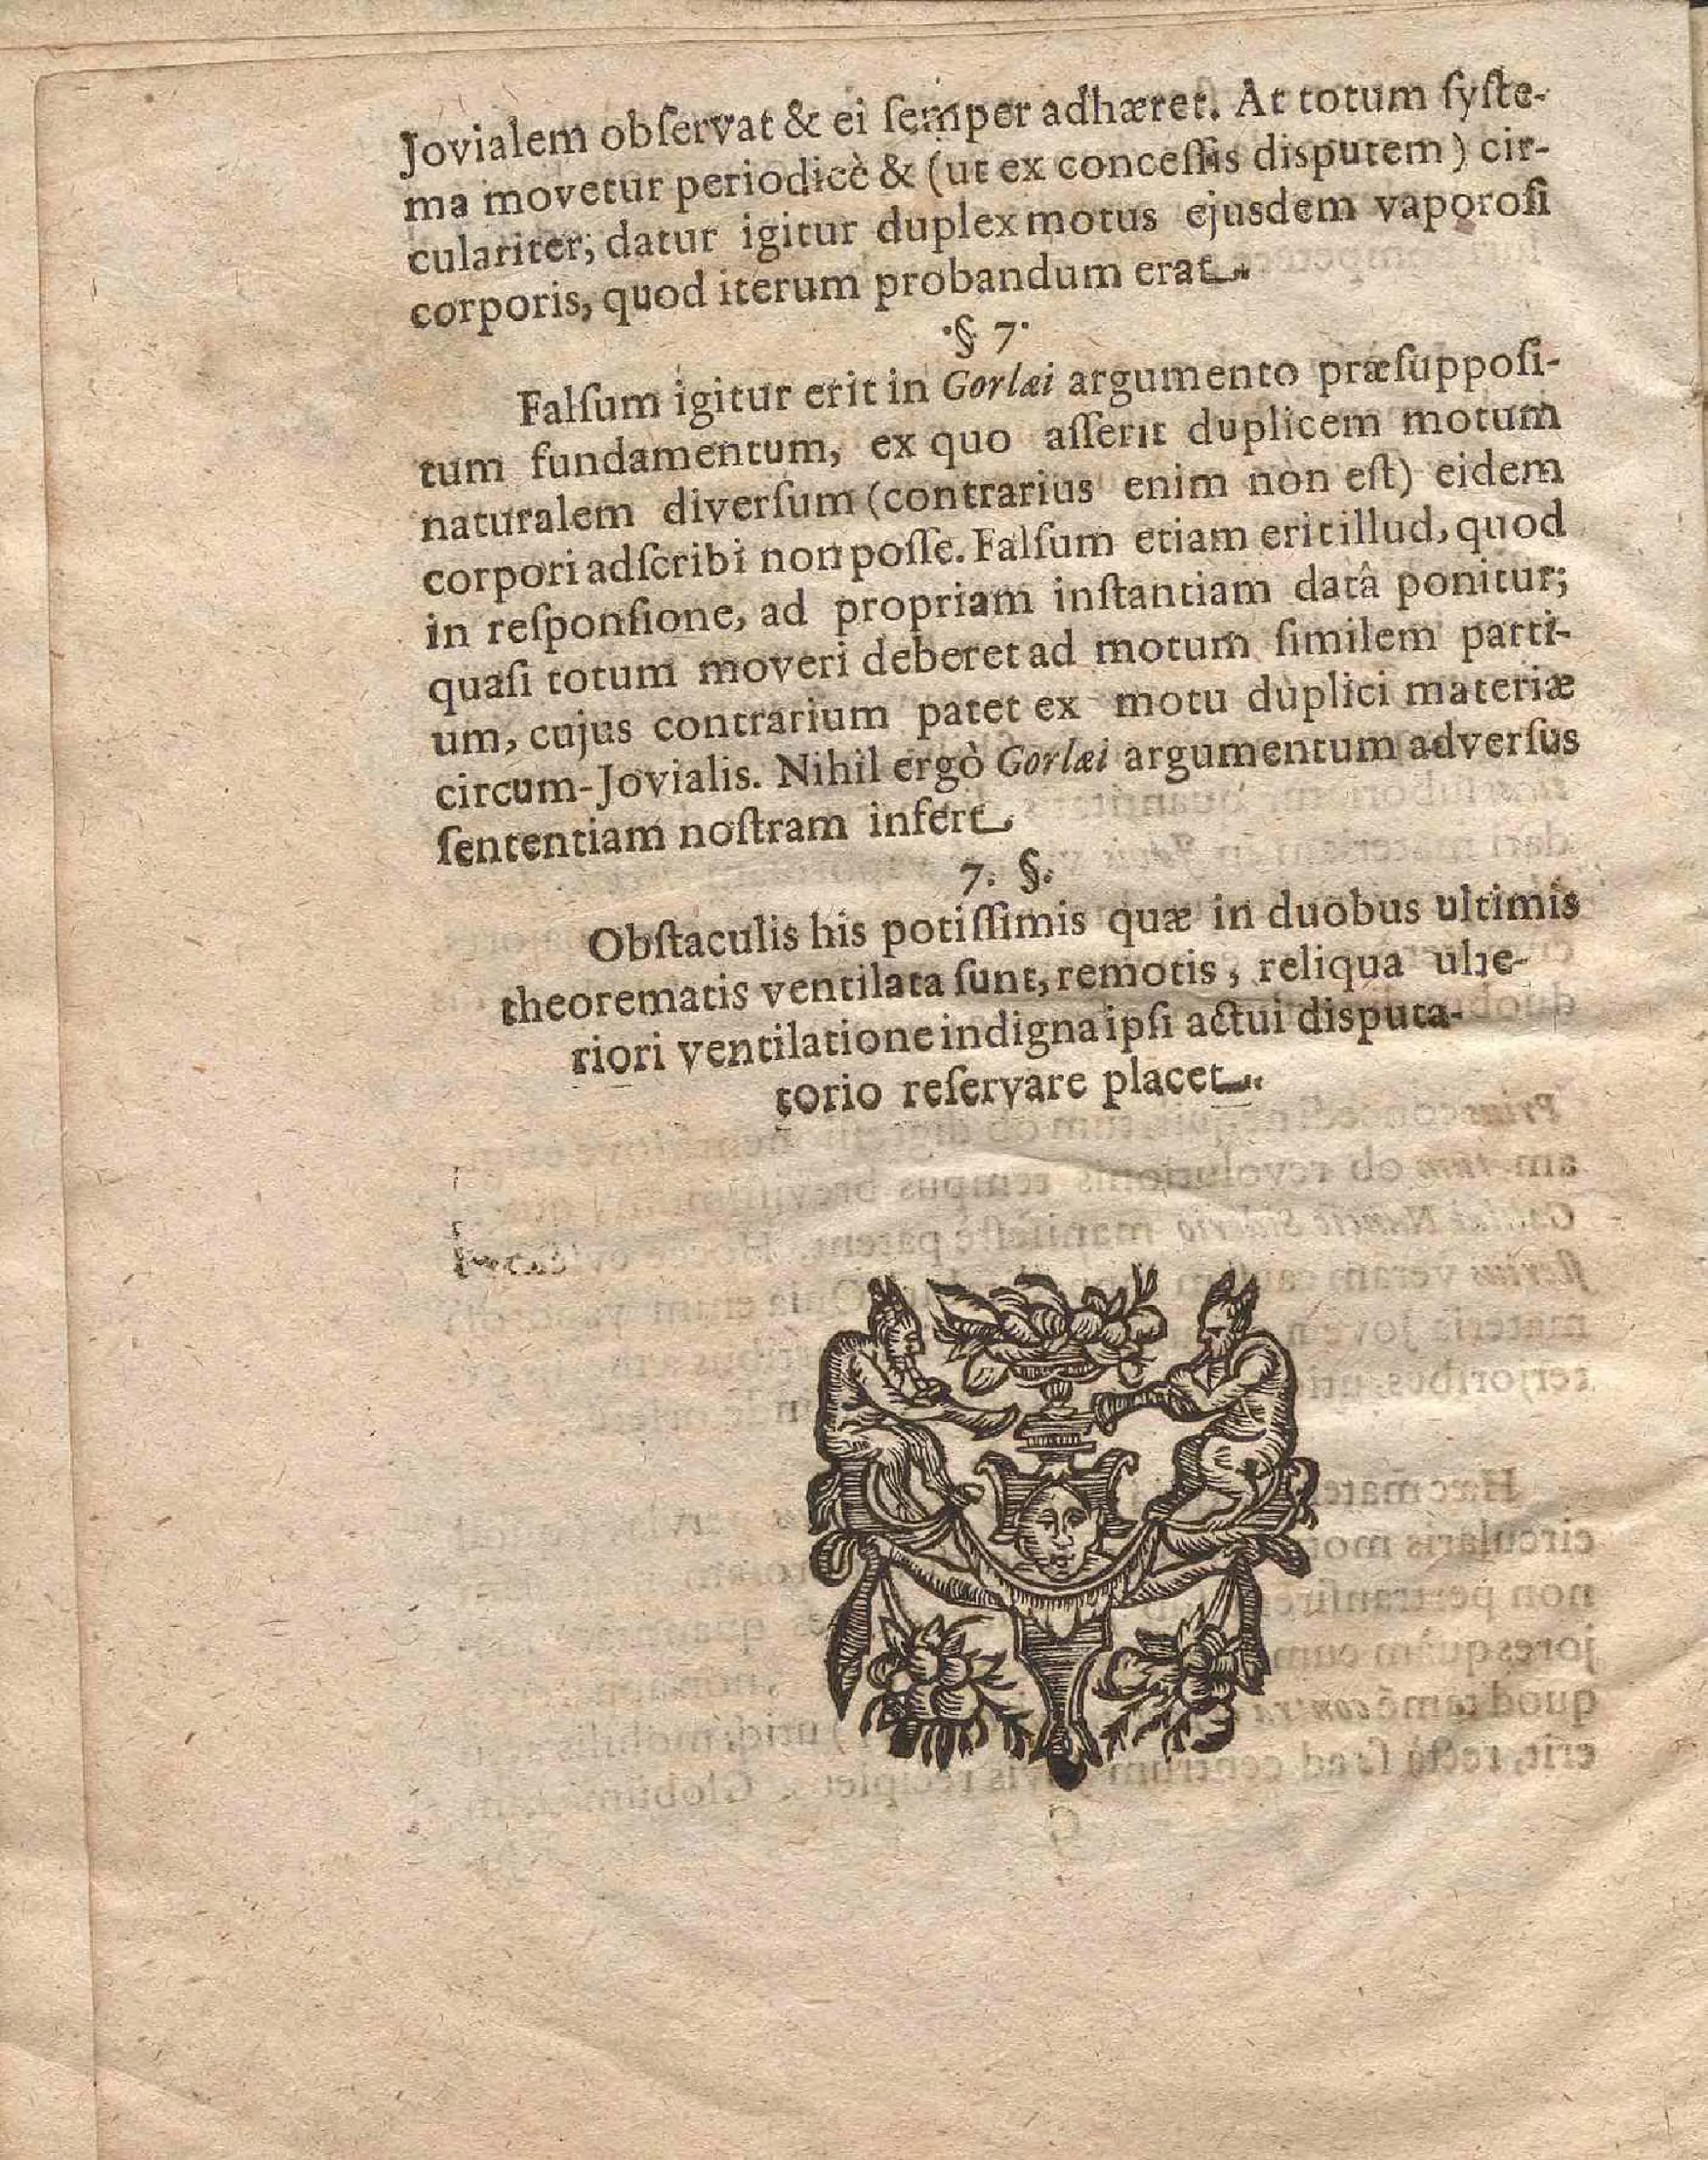 Jovialem obſervat & ei ſemper adhæret. At totum ſyſte-
ma movetur periodicè & (ut ex conceſſis disputem) cir-
culariter; datur igitur duplex motus ejusdem vaporoſi
corporis, quod iterum probandum erat.
§ 7.
Falſum igitur erit in Gorlæi argumento præſuppoſi-
tum fundamentum, ex quo aſſerit duplicem motum
naturalem diverſum (contrarius enim non eſt) eidem
corpori adſcribi non poſſe. Falſum etiam erit illud, quod
in reſponſione, ad propriam inſtantiam datâ ponitur;
quaſi totum moveri deberet ad motum ſimilem parti-
um, cujus contrarium patet ex motu duplici materiæ
circum-Jovialis. Nihil ergò Gorlæi argumentum adverſus
ſententiam noſtram infert.
7. §.
Obſtaculis his potiſſimis quæ in duobus ultimis
theorematis ventilata ſunt, remotis, reliqua ube-
riori ventilatione indigna ipſi actui disputa-
torio reſervare placet.